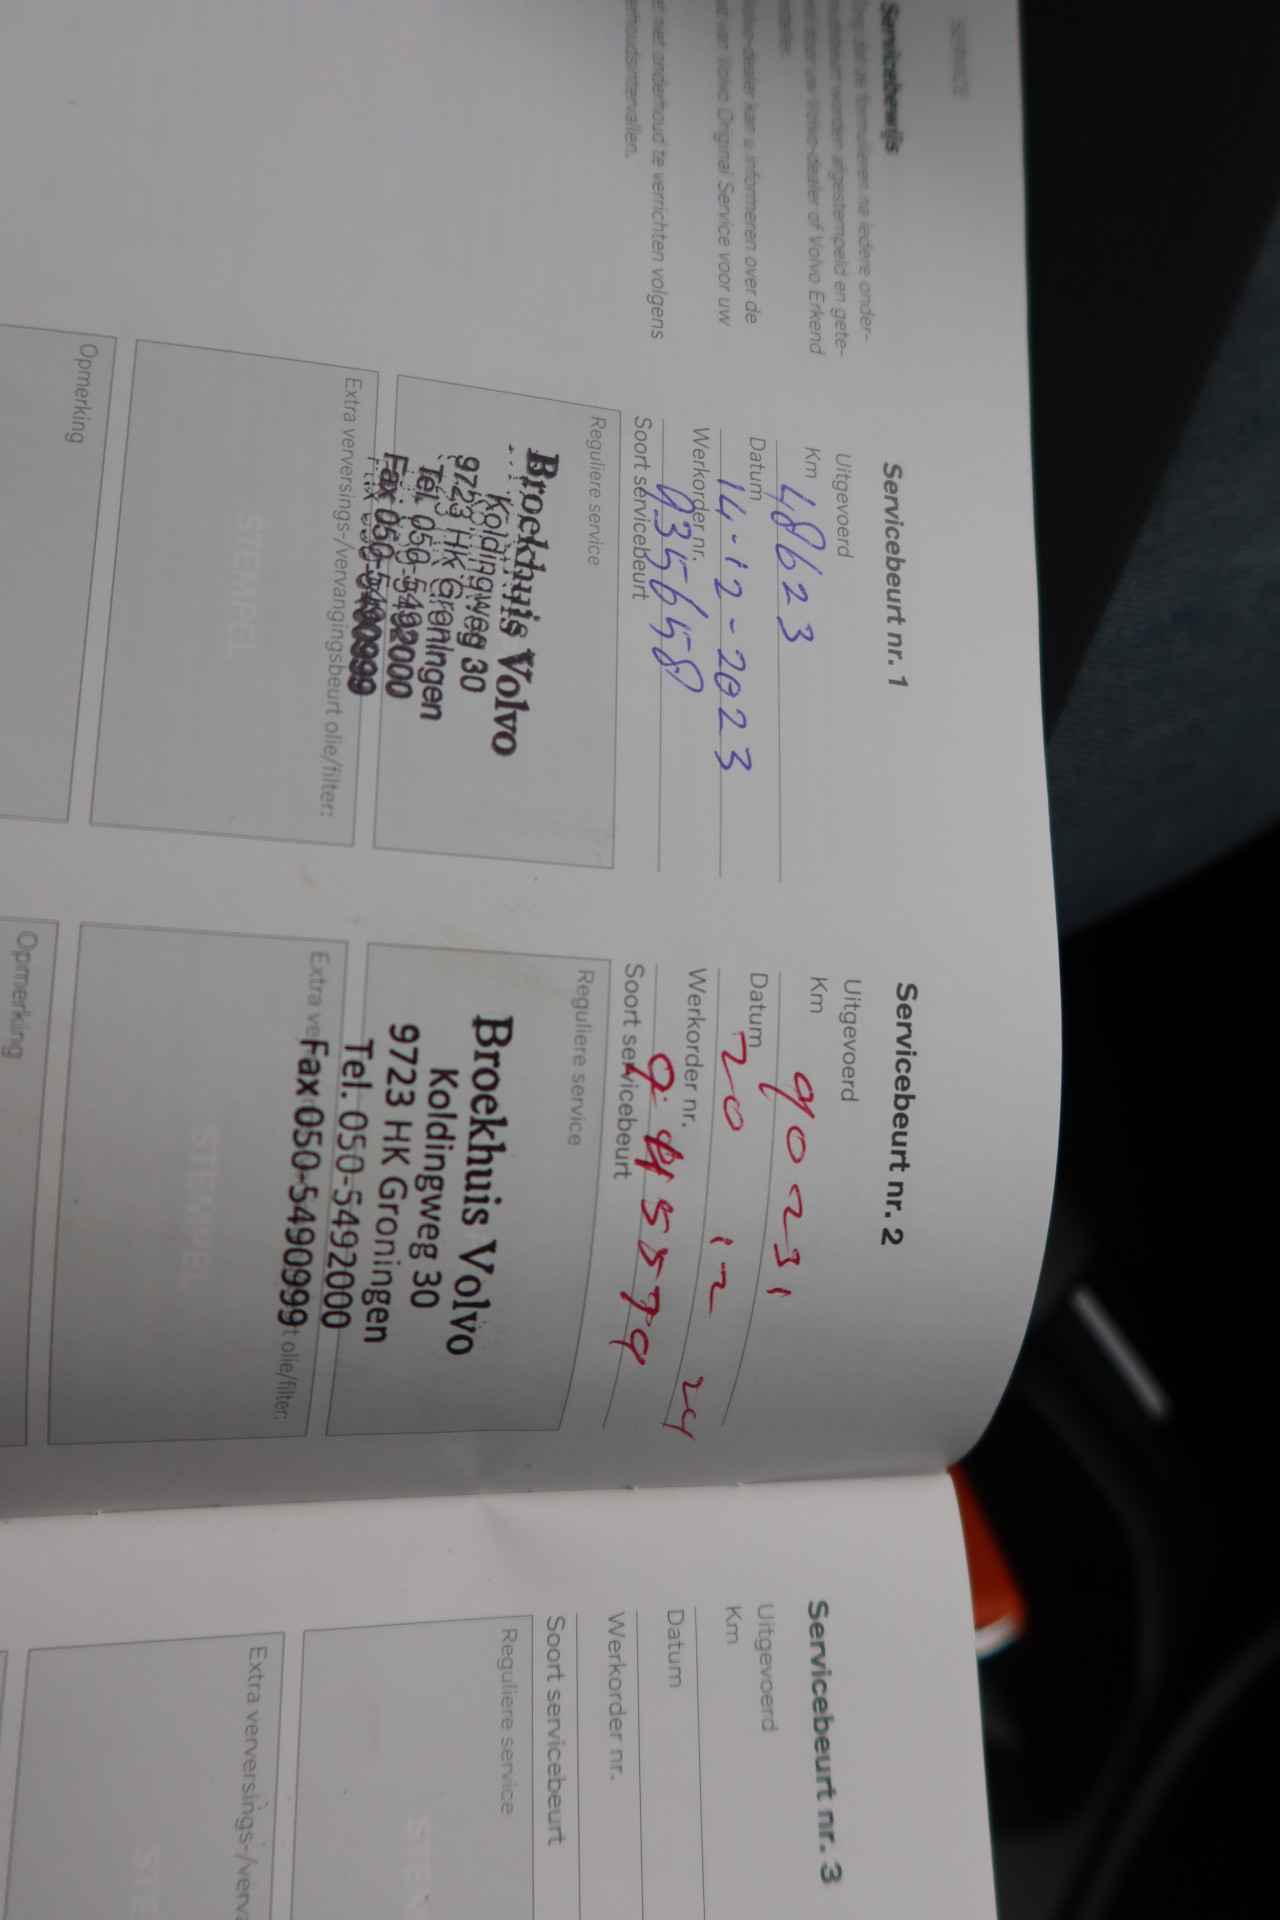 SERVICE
Servicebewijs
formulieren na iedere onder-
worden afgestempeld en gete-
uw Volvo-dealer of Volvo Erkend
dealer kan u informeren over de
van Volvo Original Service voor uw
het onderhoud te verrichten volgens
Servicebeurt nr. 1
Uitgevoerd
Km 48623
Datum 14-12-2023
Werkorder nr. 935658
Soort servicebeurt
Reguliere service
Broekhuis Volvo
Koldingweg 30
9723 HK Groningen
Tel. 050-5492000
Fax 050-5490999
Extra verversings-/vervangingsbeurt olie/filter:
STEMPEL
Opmerking
Servicebeurt nr. 2
Uitgevoerd
Km 90231
Datum 20 12 24
Werkorder nr.
Soort servicebeurt
Reguliere service
Broekhuis Volvo
Koldingweg 30
9723 HK Groningen
Tel. 050-5492000
Fax 050-5490999
Extra olie/filter:
STEMPEL
Opmerking
Servicebeurt nr. 3
Uitgevoerd
Km
Datum
Werkorder nr.
Soort servicebeurt
Reguliere service
STEM
Extra verversings-/verva
STE